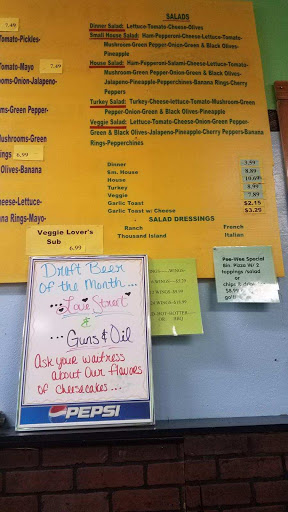 7.49
SALADS
Dinner Salad: Lettuce-Tomato-Cheese-Olives
Small House Salad: Ham-Pepperoni-Cheese-Lettuce-Tomato-
Mushroom-Green Pepper-Onion-Green & Black Olives-
Pineapple
House Salad: Ham-Pepperoni-Salami-Cheese-Lettuce-Tomato-
Mushroom-Green Pepper-Onion-Green & Black Olives-
Jalapeno-Pineapple-Pepperchinies-Banana Rings-Cherry
Peppers
Turkey Salad: Turkey-Cheese-lettuce-Tomato-Mushroom-Green
Pepper-Onion-Green & Black Olives-Pineapple
Veggie Salad: Lettuce-Tomato-Cheese-Onion-Green Pepper-
Green & Black Olives-Jalapeno-Pineapple-Cherry Peppers-Banana
Rings-Pepperchinies
Dinner 3.59
Sm. House 8.89
House 10.69
Turkey 8.99
Veggie 7.89
Garlic Toast $2.15
Garlic Toast w/ Cheese $3.25
SALAD DRESSINGS
Ranch French
Thousand Island Italian
Tomato-Pickles-
Tomato-Mayo 7.50
ooms-Onion-Jalapeno-
s-Green Pepper-
Mushrooms-Green
ings 6.99
Olives-Banana
heese-Lettuce-
ana Rings-Mayo-
Veggie Lover's
Sub 6.99
Draft Beer
of the Month...
...Love Street
&
...Guns & Oil
Ask your waitress
about Our flavors
of Cheesecakes...
PEPSI
WINGS
BBQ
Pee-Wee Special
8in. Pizza W/ 2
toppings /salad
or
chips & drink
$8.99